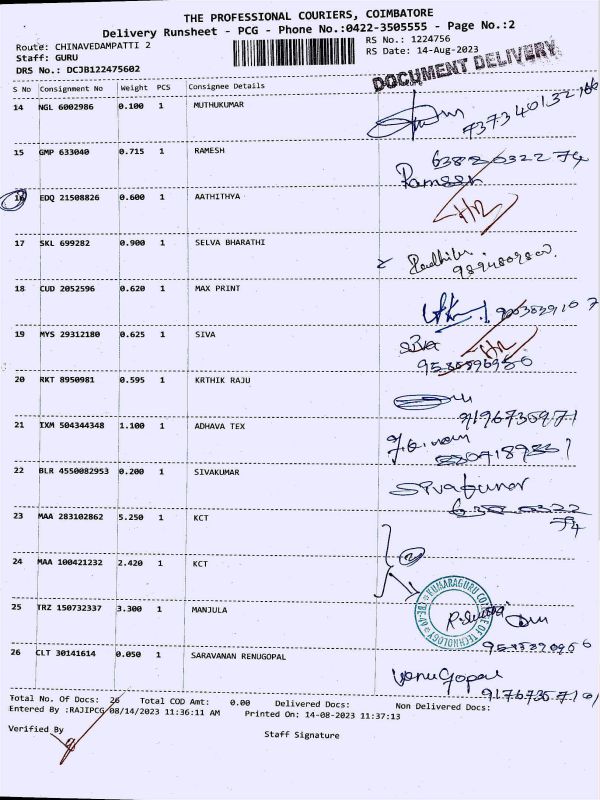 THE PROFESSIONAL COURIERS, COIMBATORE
Delivery Runsheet - PCG - Phone No.:0422-3505555 - Page No.:2
Route: CHINAVEDAMPATTI 2
RS No.: 1224756
Staff: GURU
RS Date: 14-Aug-2023
DRS No.: DCJB122475602
DOCUMENT DELIVERY
S No Consignment No Weight PCS Consignee Details
14 NGL 6002986 0.100 1 MUTHUKUMAR
15 GMP 633040 0.715 1 RAMESH
Ramesh
16 EDQ 21508826 0.600 1 AATHITHYA
17 SKL 699282 0.900 1 SELVA BHARATHI
18 CUD 2052596 0.620 1 MAX PRINT
19 MYS 29312180 0.625 1 SIVA
Siva
20 RKT 8950981 0.595 1 KRTHIK RAJU
21 IXM 504344348 1.100 1 ADHAVA TEX
22 BLR 4550082953 0.200 1 SIVAKUMAR
Sivakumar
23 MAA 283102862 5.250 1 KCT
24 MAA 100421232 2.420 1 KCT
2
KUMARAGURU COLLEGE OF TECHNOLOGY
25 TRZ 150732337 3.300 1 MANJULA
26 CLT 30141614 0.050 1 SARAVANAN RENUGOPAL
VenuGopal
Total No. Of Docs: 26 Total COD Amt: 0.00 Delivered Docs: Non Delivered Docs:
Entered By :RAJIPCG/08/14/2023 11:36:11 AM Printed On: 14-08-2023 11:37:13
Verified By
Staff Signature